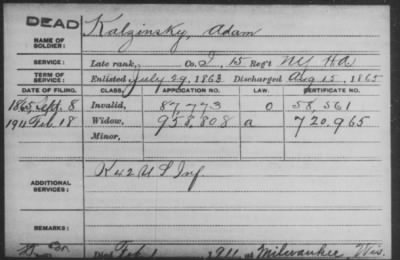 DEAD Kalzinsky, Adam
NAME OF SOLDIER:
SERVICE: Late rank, Co. I, 15 Reg't NY HA
TERM OF SERVICE: Enlisted July 29, 1863 Discharged Aug 15, 1865
DATE OF FILING. CLASS. APPLICATION NO. LAW. CERTIFICATE NO.
1865 Sept. 8 Invalid, 87,773 0 58,561
1911 Feb. 18 Widow, 958,808 a 720,965
Minor,
ADDITIONAL SERVICES: K 42 U S Inf
REMARKS:
Died Feb 1, 1911, at Milwaukee, Wis.